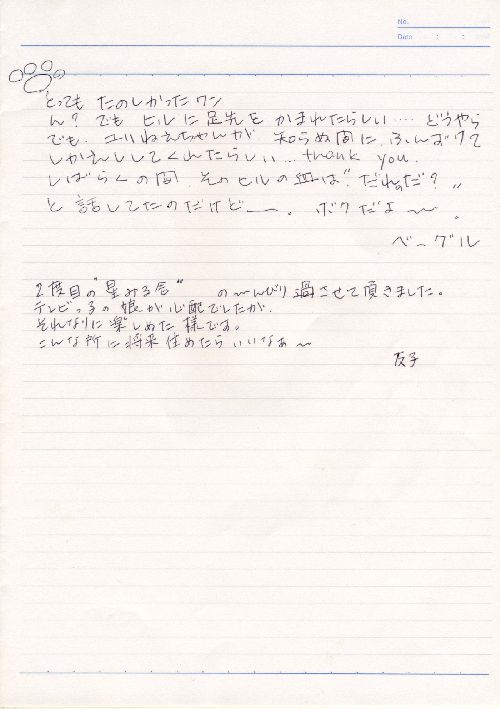 No.
Date
とっても たのしかったワン
ん? でも ヒルに足先を かまれたらしい…. どうやら
でも、ユリねえちゃんが 知らぬ間に、ふんずけて
しかえししてくれたらしい…thank you.
しばらくの間、そのヒルの血は“だれのだ?”
と 話してたのだけどー。ボクだよ〜。
ベーグル
2度目の“星みる会” の〜んびり過させて頂きました。
テレビっ子の娘が心配でしたが、
それなりに楽しめた様です。
こんな所に将来住めたらいいなぁ〜
友子